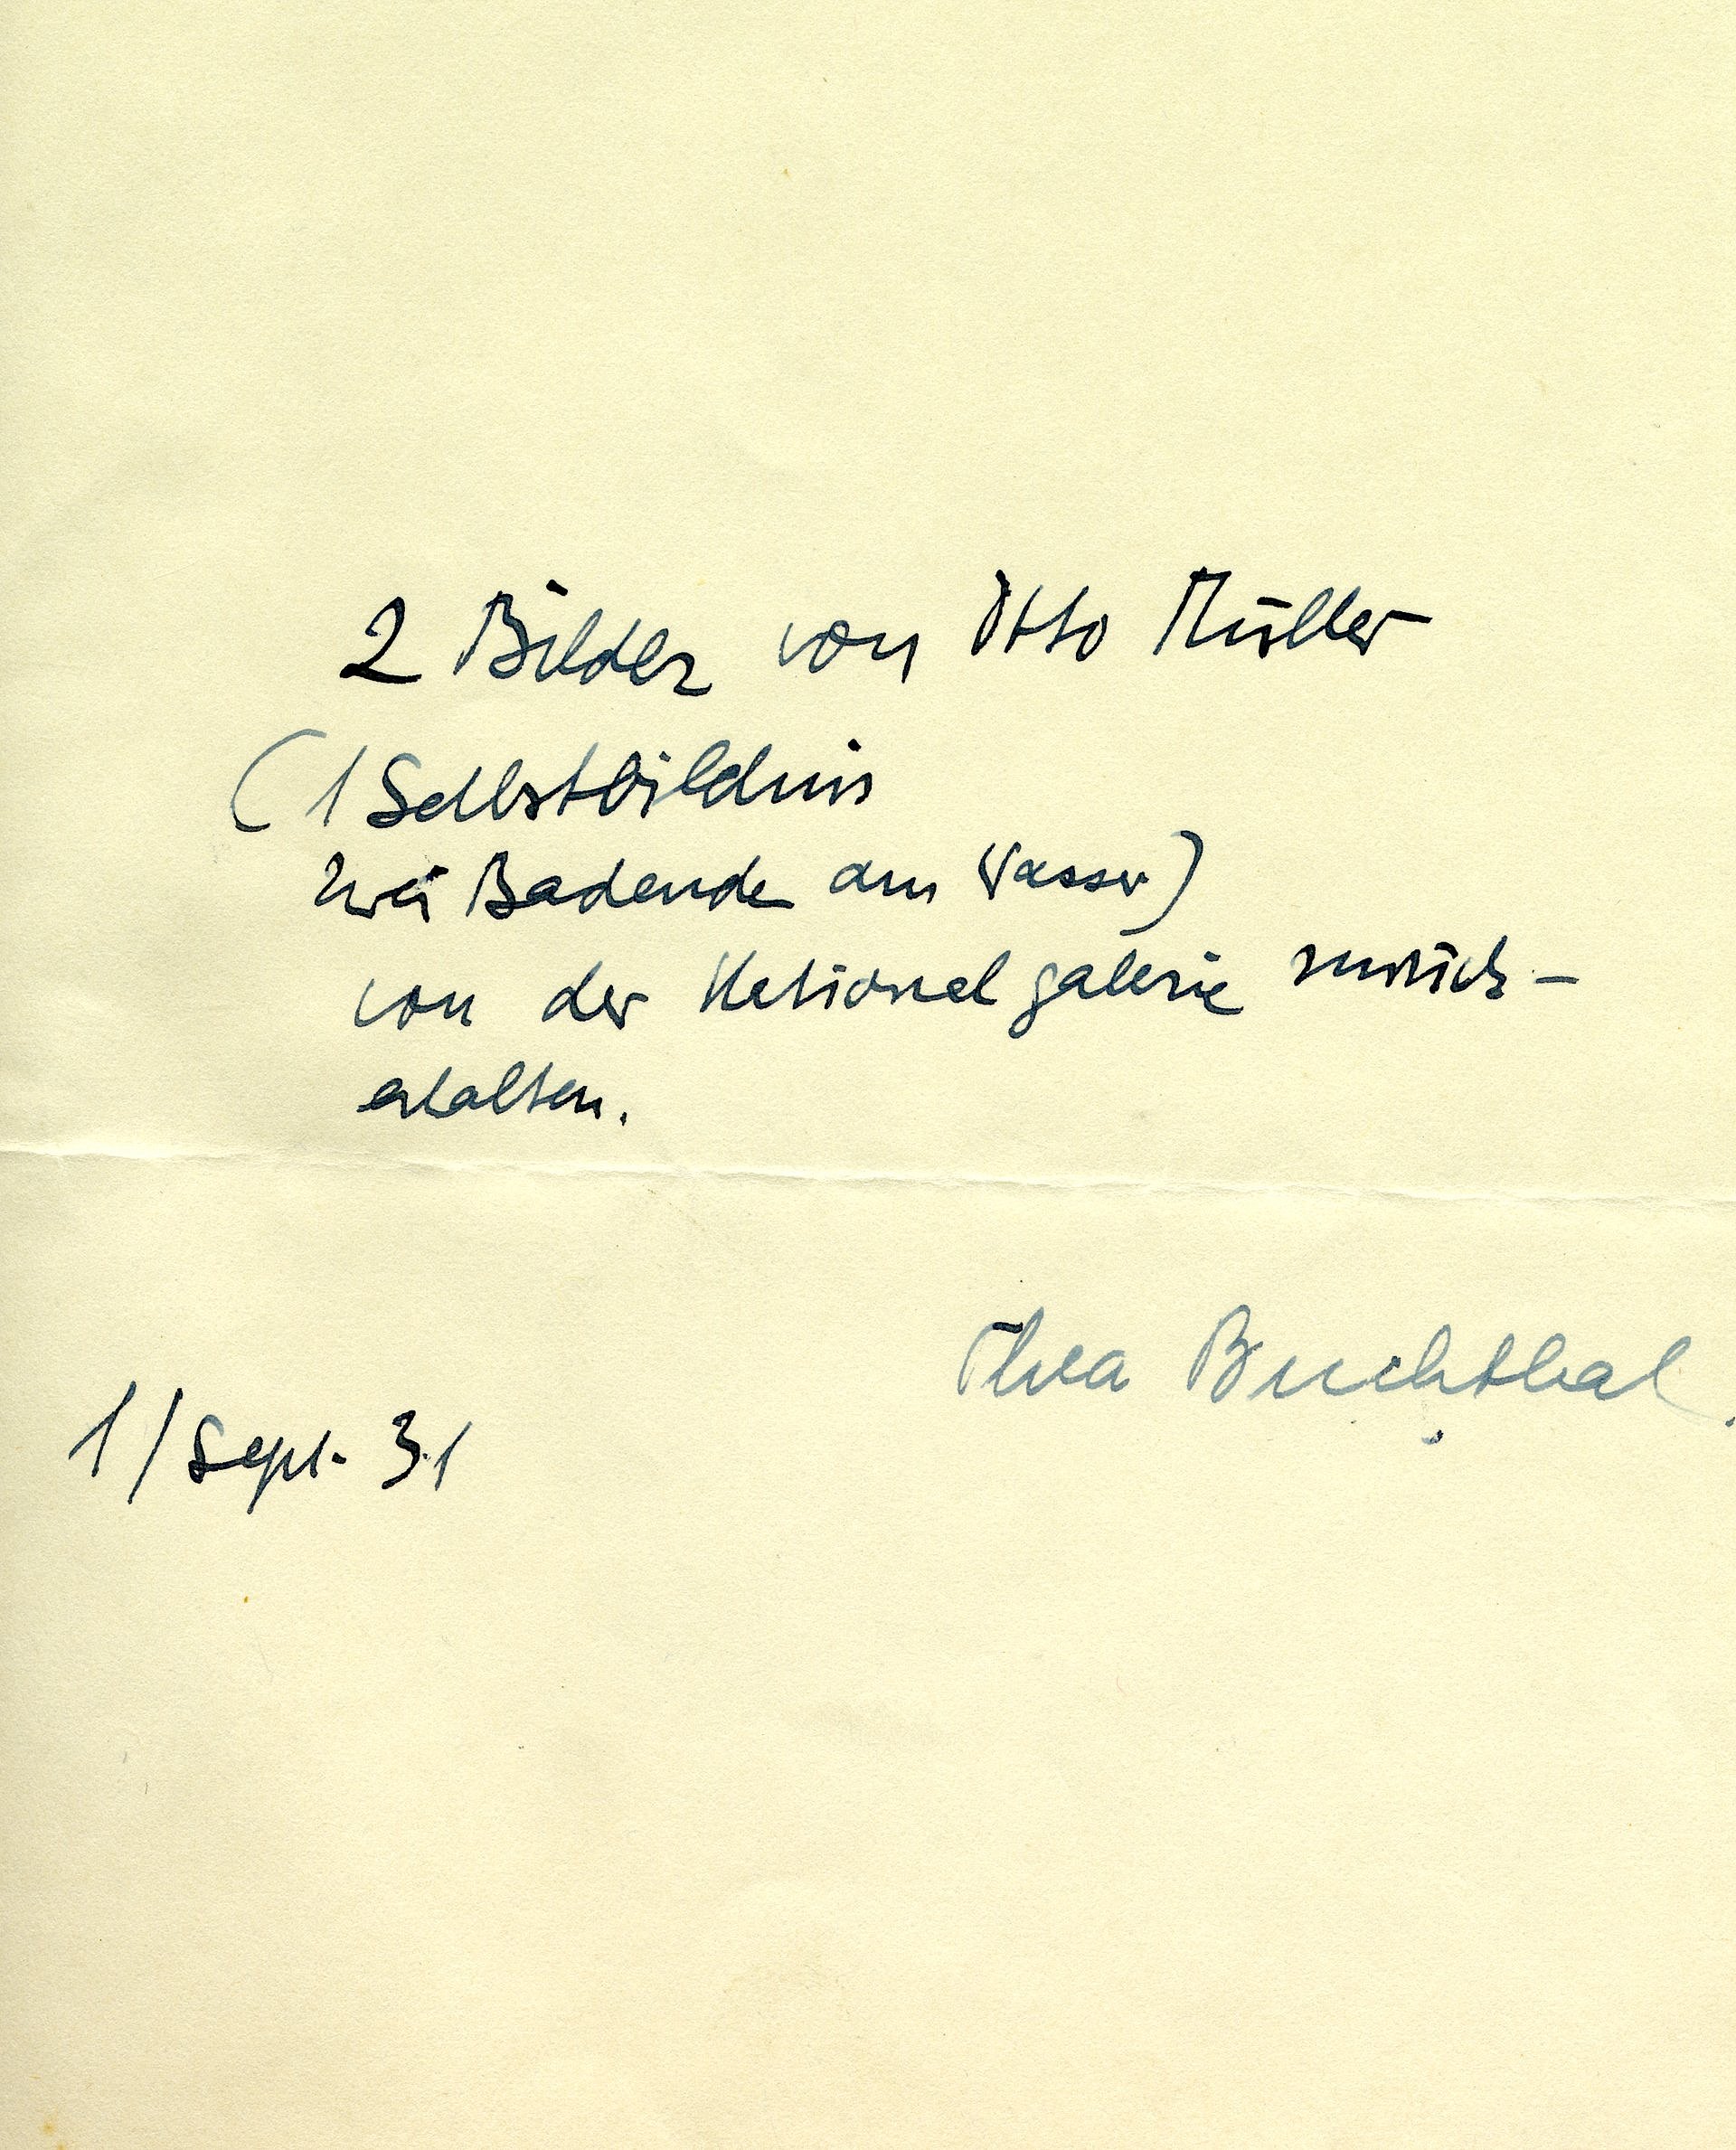 2 Bilder von Otto Müller
(1 Selbstbildnis
zwei Badende am Wasser)
von der Nationalgalerie zurück-
erhalten.
Thea Buchthal.
1/Sept. 31